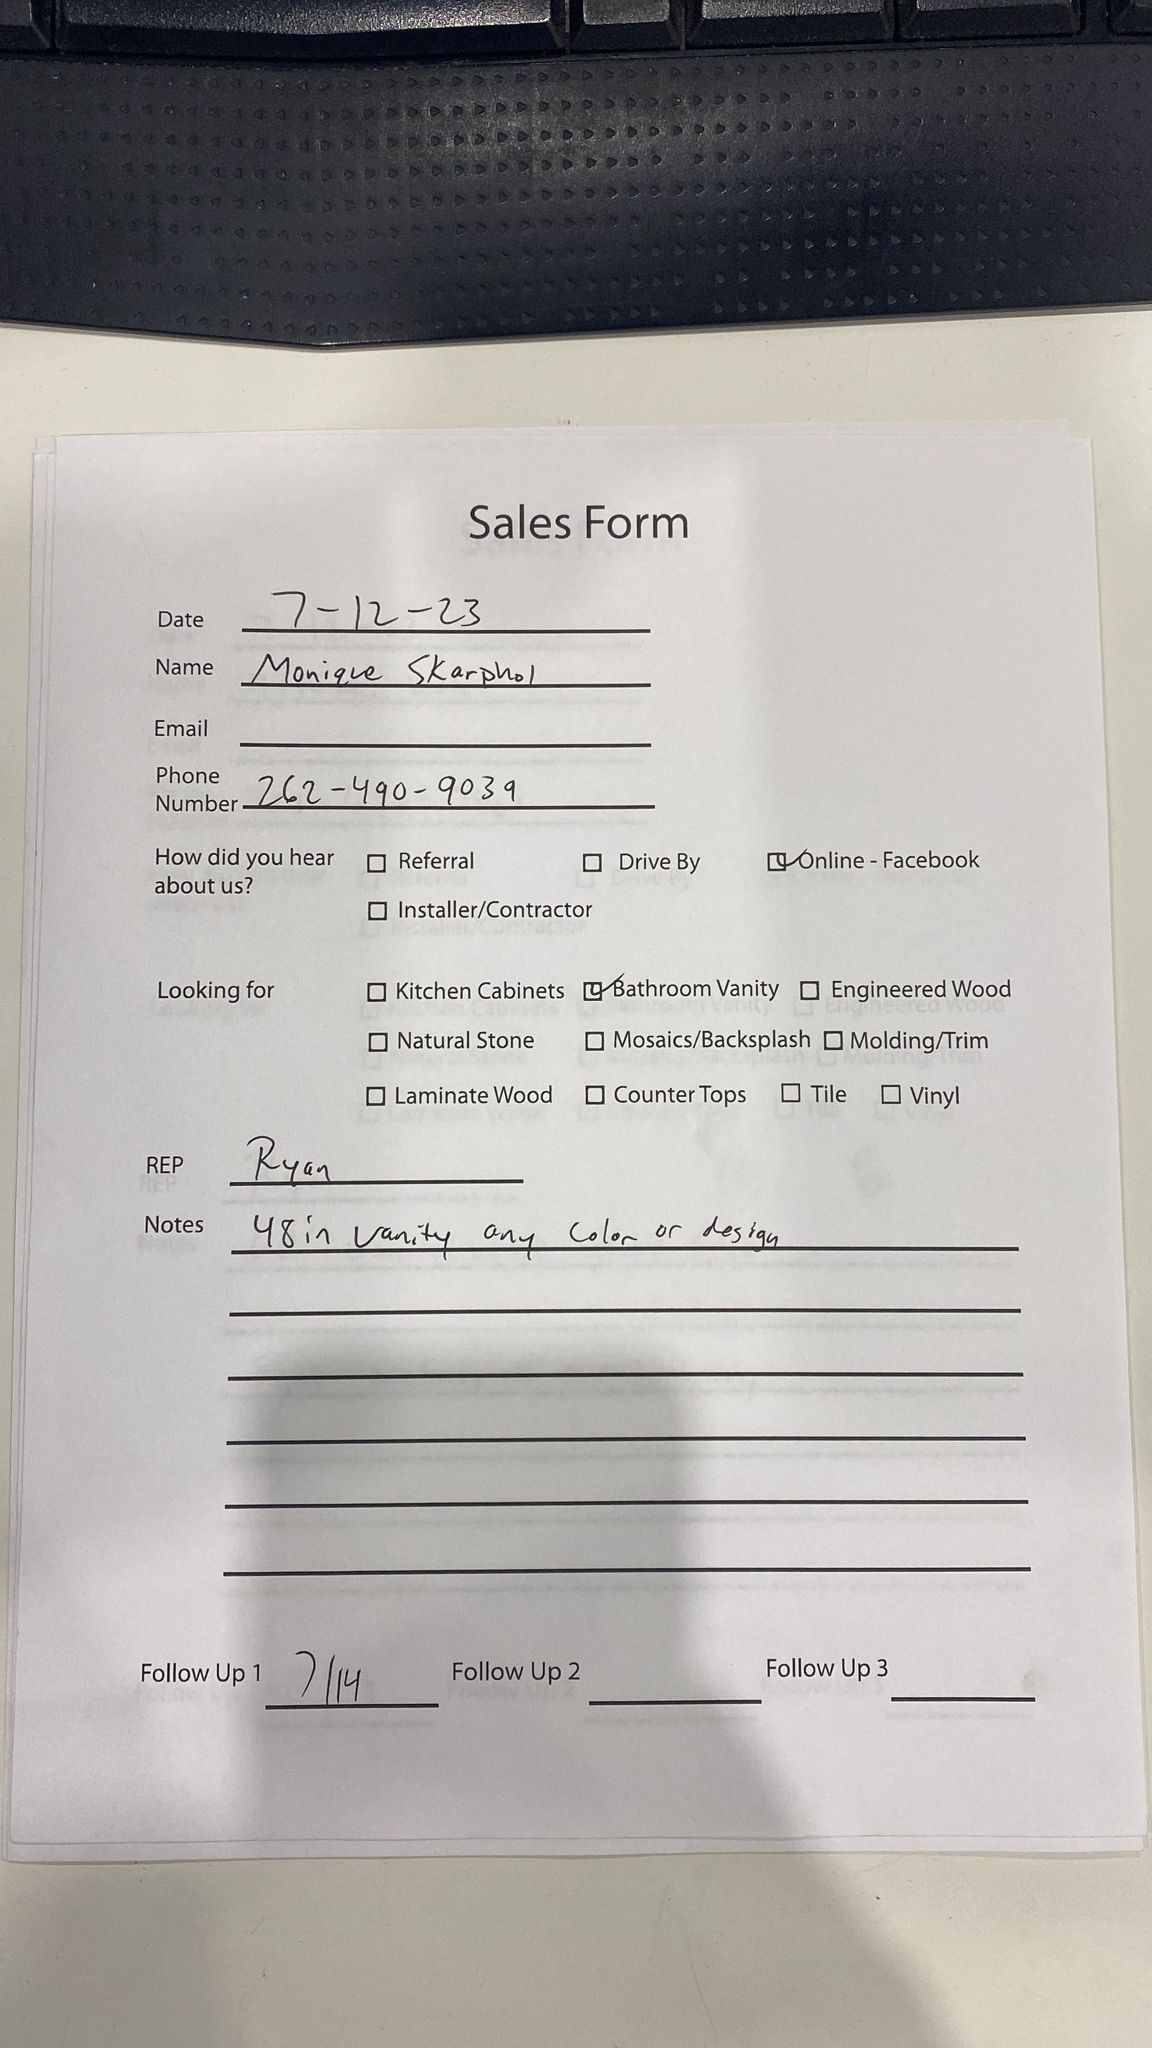 Sales Form
Date 7-12-23
Name Monique Skarphol
Email
Phone
Number 262-490-9039
How did you hear
about us?
☐ Referral ☐ Drive By ☑ Online - Facebook
☐ Installer/Contractor
Looking for ☐ Kitchen Cabinets ☑ Bathroom Vanity ☐ Engineered Wood
☐ Natural Stone ☐ Mosaics/Backsplash ☐ Molding/Trim
☐ Laminate Wood ☐ Counter Tops ☐ Tile ☐ Vinyl
REP Ryan
Notes 48in vanity any color or design
Follow Up 1 7/14 Follow Up 2 Follow Up 3